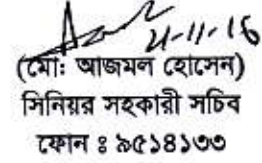 21-11-16
(মোঃ আজমল হোসেন)
সিনিয়র সহকারী সচিব
ফোন ঃ ৯৫১৪১৩৩